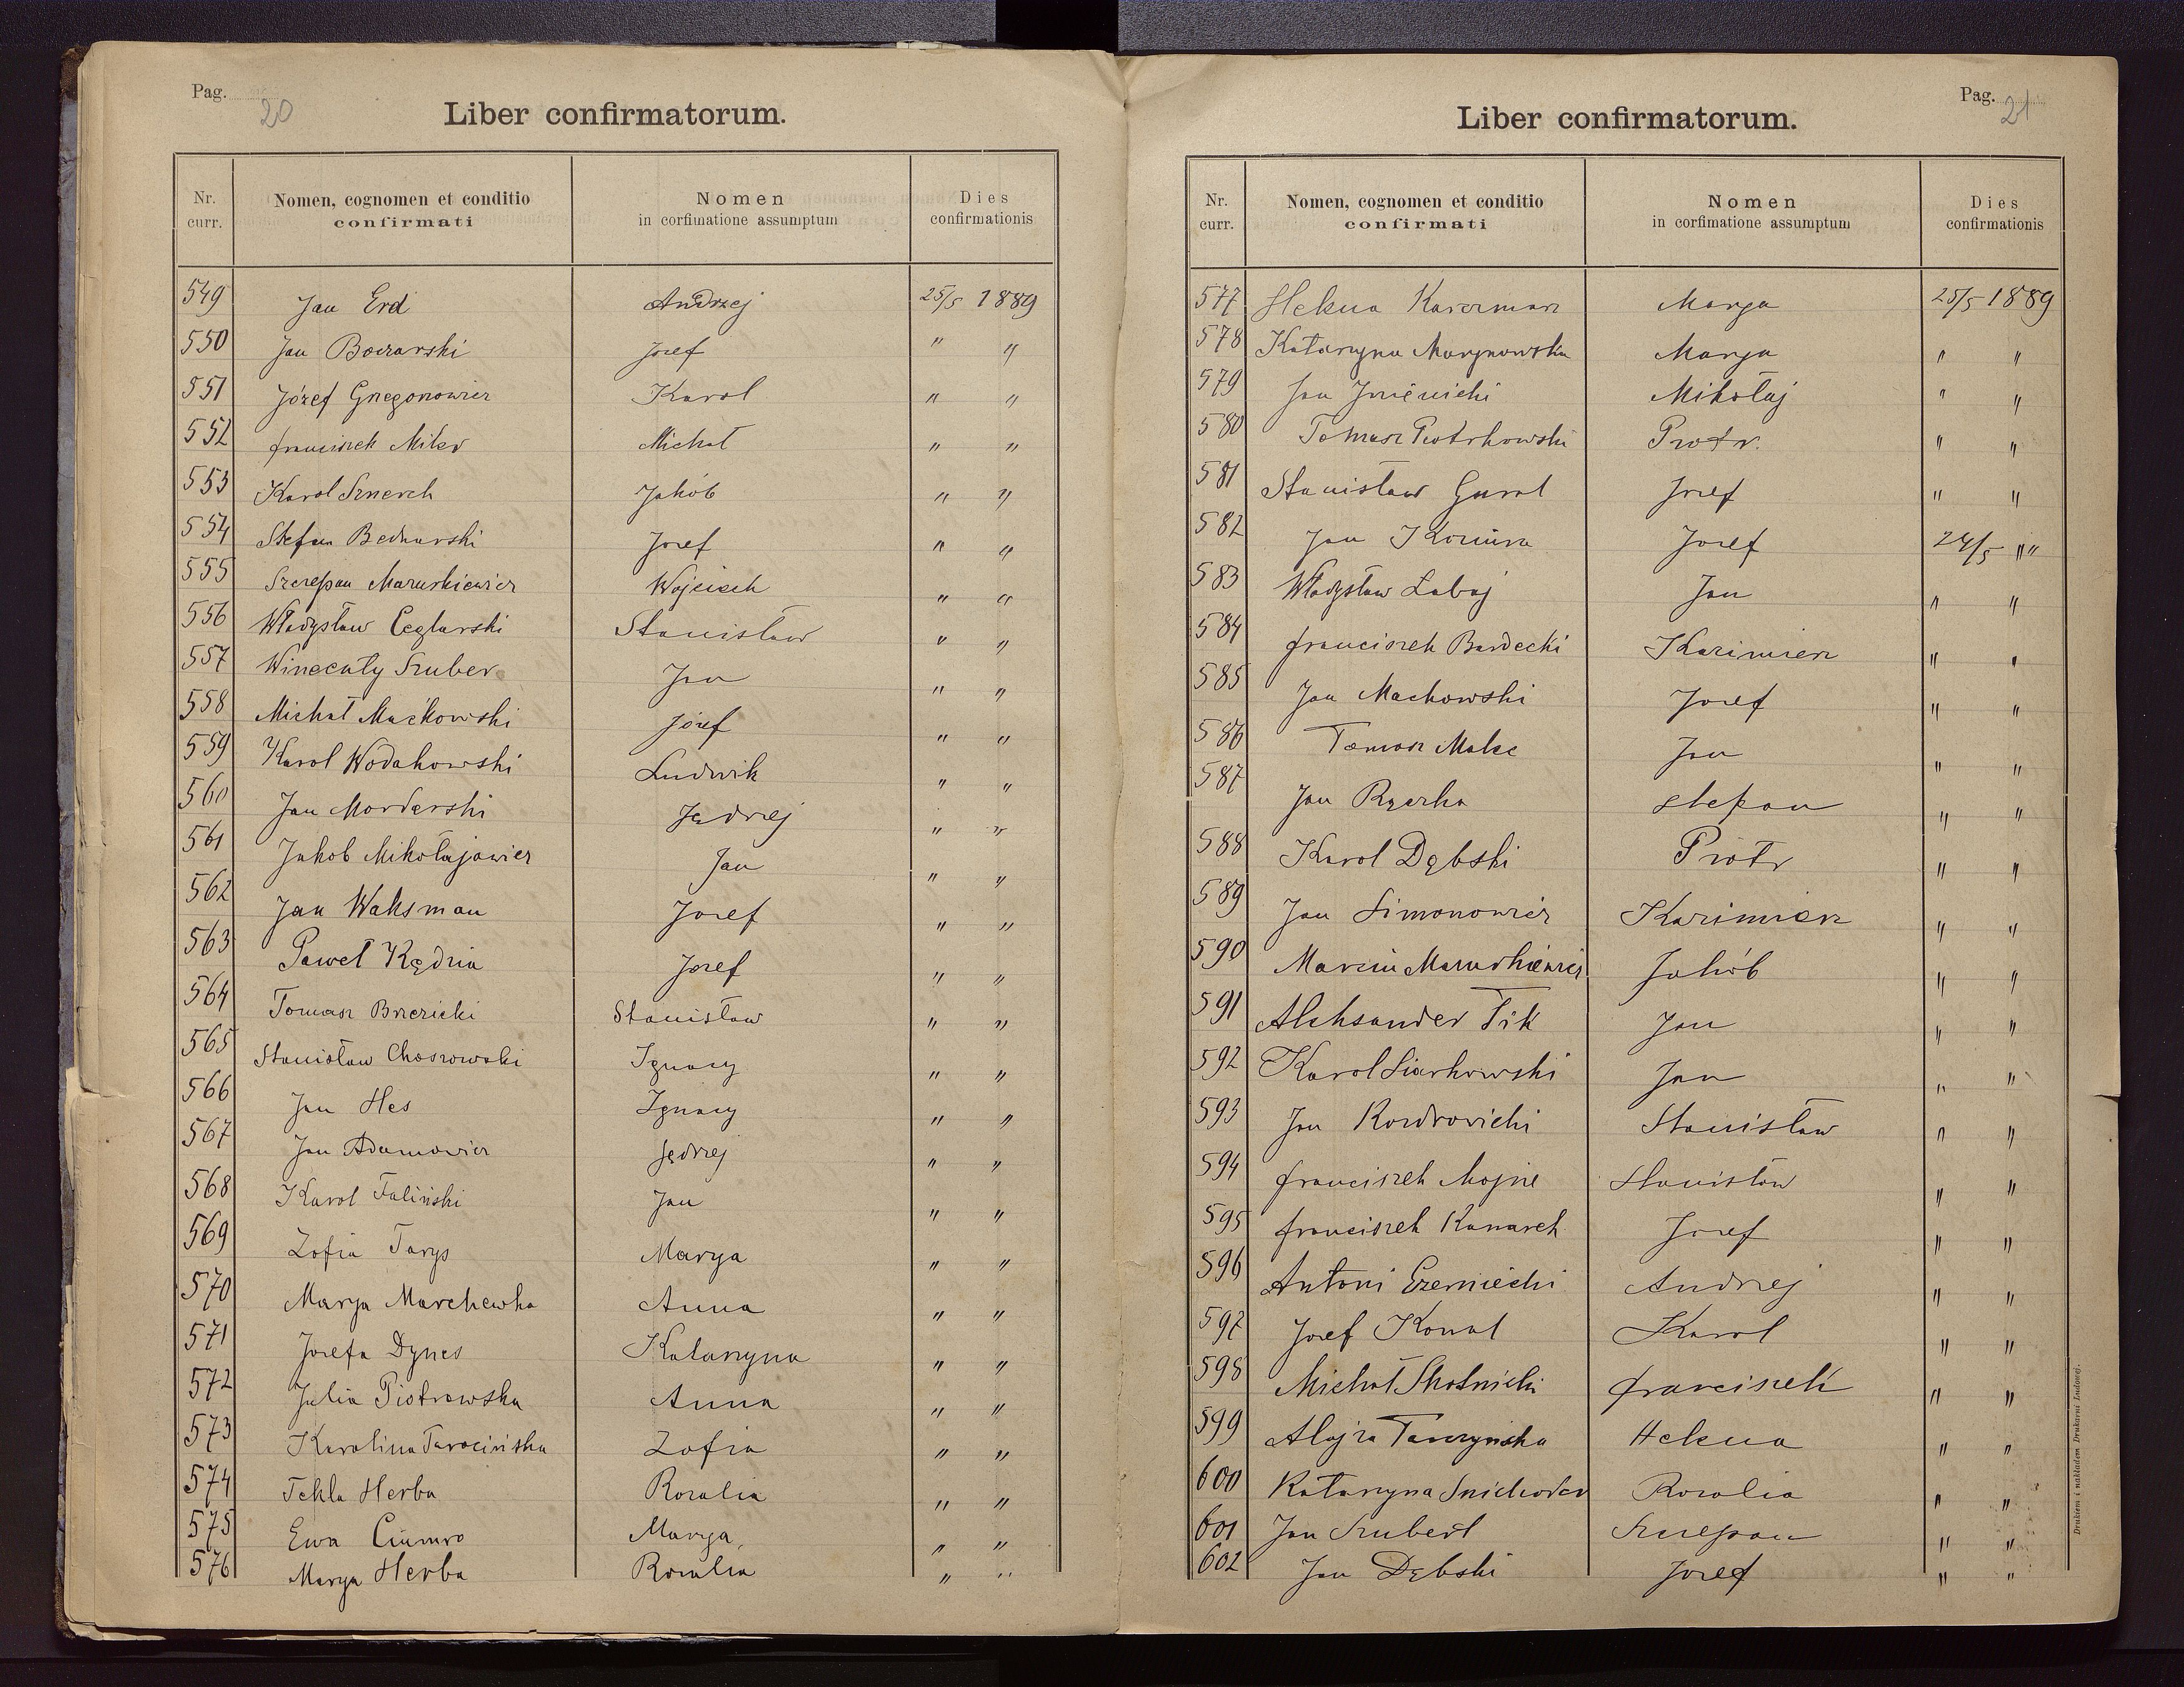 Pag. 20
Liber confirmatorum.
Nr. curr. Nomen, cognomen et conditio confirmati Nomen in corfimatione assumptum Dies confirmationis
549 Jan Erd Andrzej 25/5 1889
550 Jan Boczarski Jozef " "
551 Józef Gregorowicz Karol " "
552 franciszek Miler Michał " "
553 Karol Sznerch Jakób " "
554 Stefan Bednarski Jozef " "
555 Szczepan Maruszkiewicz Wojciech " "
556 Władysław Ceglarski Stanisław " "
557 Winccnty Szuber Jan " "
558 Michał Maćkowski Józef " "
559 Karol Wodakowski Ludwik " "
560 Jan Mordarski Jędrzej " "
561 Jakob Mikołajowicz Jan " "
562 Jan Waksman Jozef " "
563 Paweł Kędzia Jozef " "
564 Tomasz Brzezicki Stanisław " "
565 Stanisław Ignacy " "
566 Jan Hes Ignacy " "
567 Jan Adamowicz Jędrzej " "
568 Karol Faliński Jan " "
569 Zofia Tarys Marya " "
570 Marya Marchewka Anna " "
571 Jozefa Dynes Katarzyna " "
572 Julia Piotrowska Anna " "
573 Karolina Tarocińska Zofia " "
574 Tekla Herba Rozalia " "
575 Ewa Ciumro Marya " "
576 Marya Herba Rozalia " "
Pag. 21
Liber confirmatorum.
Nr. curr. Nomen, cognomen et conditio confirmati Nomen in corfimatione assumptum Dies confirmationis
577 Helena Marya 25/5 1889
578 Katarzyna Marynowska Marya " "
579 Jan Mikołaj " "
580 Tomasz Piotrkowski Piotr. " "
581 Stanisław Gurol Jozef " "
582 Jan Koziura Jozef 24/5 " "
583 Władysław Labaj Jan " "
584 franciszek Bardecki Kazimierz " "
585 Jan Machowski Jozef " "
586 Tomasz Malec Jan " "
587 Jan Rzeszka " "
588 Karol Dębski Piotr " "
589 Jan Simonowicz Kazimierz " "
590 Marcin Maruszkiewicz Jakób " "
591 Aleksander Fik Jan " "
592 Karol Siarkowski Jan " "
593 Jan Stanisław " "
594 franciszek Mojże Stanisław " "
595 franciszek Kanarek Jozef " "
596 Antoni Czerniecki Andrzej " "
597 Jozef Konał Karol " "
598 Michał Skotnicki franciszek " "
599 Alojza Tarczyńska Helena " "
600 Katarzyna Rozalia " "
601 Jan Szubert Szczepan " "
602 Jan Dębski Jozef " "
Drukiem i nakładem Drukarni Ludowej.